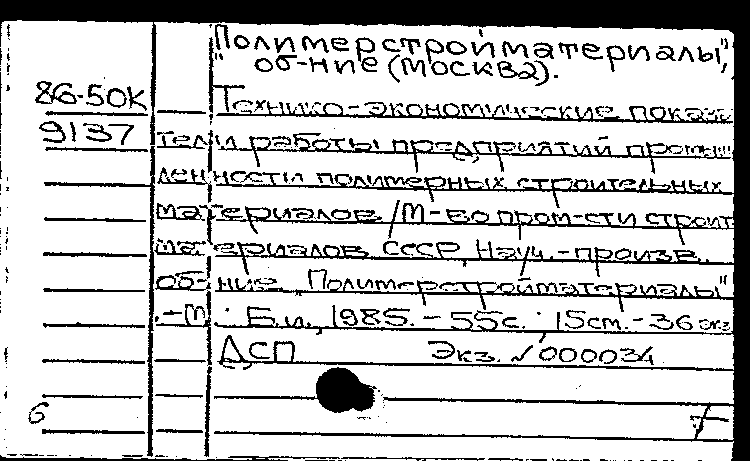 "Полимерстройматериалы",
об-ние (Москва).
86-50К Технико-экономические показа
9137 тели работы предприятий промыш
ленности полимерных строительных
материалов / М-во пром-сти строит
материалов СССР, Науч.-произв.
об-ние „Полимерстройматериалы"
.-М.: Б.и., 1985. - 55с.; 15см. - 36 экз
ДСП Экз. №000034
6